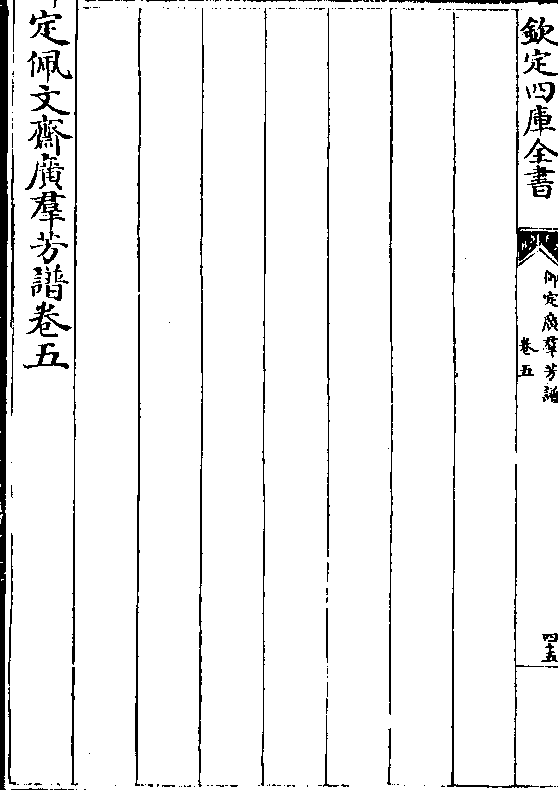 欽定四庫全書
御定廣羣芳譜
卷五
四十五
定佩文齋廣羣芳譜卷五